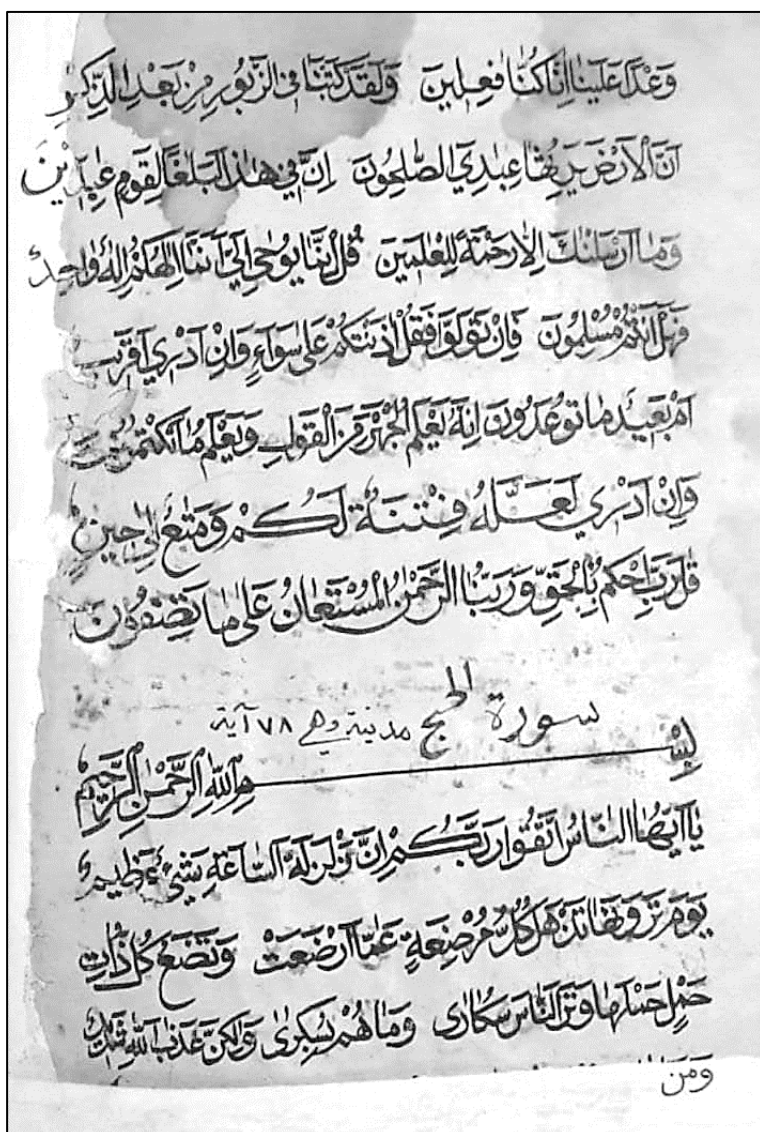 وَعْدًا عَلَيْنَا اِنَّا كُنَّا فٰعِلِينَ وَلَقَدْ كَتَبْنَا فِي الزَّبُورِ مِنْ بَعْدِ الذِّكْرِ
اَنَّ الْاَرْضَ يَرِثُهَا عِبَادِيَ الصّٰلِحُونَ اِنَّ فِي هٰذَا لَبَلٰغًا لِقَوْمٍ عٰبِدِينَ
وَمَا اَرْسَلْنٰكَ اِلَّا رَحْمَةً لِلْعٰلَمِينَ قُلْ اِنَّمَا يُوحٰى اِلَيَّ اَنَّمَا اِلٰهُكُمْ اِلٰهٌ وَاحِدٌ
فَهَلْ اَنْتُمْ مُسْلِمُونَ فَاِنْ تَوَلَّوْا فَقُلْ اٰذَنْتُكُمْ عَلٰى سَوَآءٍ وَاِنْ اَدْرِي اَقَرِيبٌ
اَمْ بَعِيدٌ مَا تُوعَدُونَ اِنَّهُ يَعْلَمُ الْجَهْرَ مِنَ الْقَوْلِ وَيَعْلَمُ مَا تَكْتُمُونَ
وَاِنْ اَدْرِي لَعَلَّهُ فِتْنَةٌ لَكُمْ وَمَتٰعٌ اِلٰى حِينٍ
قٰلَ رَبِّ احْكُمْ بِالْحَقِّ وَرَبُّنَا الرَّحْمٰنُ الْمُسْتَعَانُ عَلٰى مَا تَصِفُونَ
سورة الحج مدينة وهي ٧٨ آية
بِسْمِ اللّٰهِ الرَّحْمٰنِ الرَّحِيمِ
يَا اَيُّهَا النَّاسُ اتَّقُوا رَبَّكُمْ اِنَّ زَلْزَلَةَ السَّاعَةِ شَيْءٌ عَظِيمٌ
يَوْمَ تَرَوْنَهَا تَذْهَلُ كُلُّ مُرْضِعَةٍ عَمَّا اَرْضَعَتْ وَتَضَعُ كُلُّ ذَاتِ
حَمْلٍ حَمْلَهَا وَتَرَى النَّاسَ سُكَارٰى وَمَا هُمْ بِسُكٰرٰى وَلٰكِنَّ عَذَابَ اللّٰهِ شَدِيدٌ
ومن